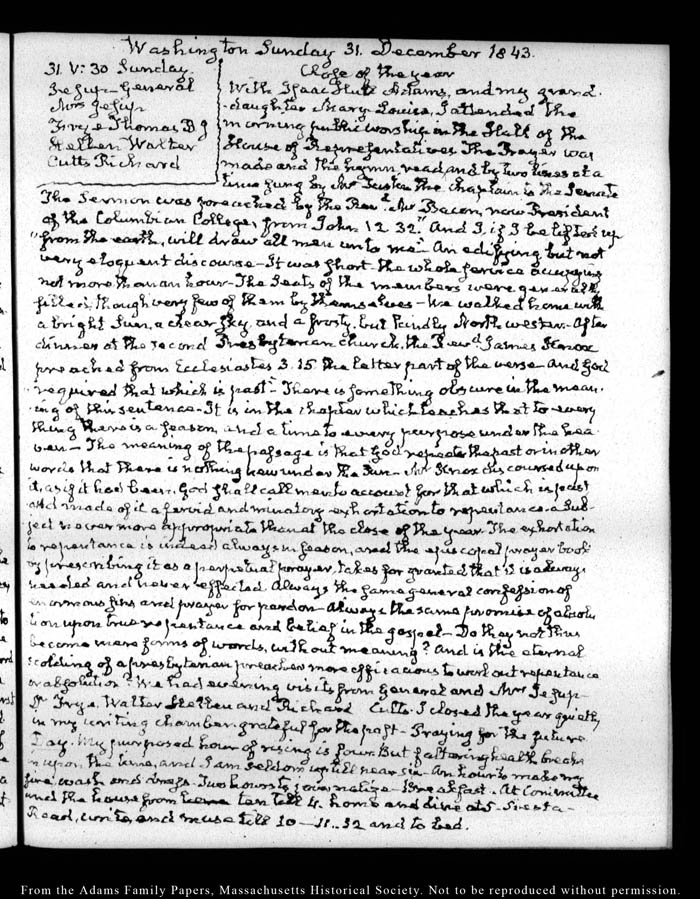 Washington Sunday 31. December 1843.
31. V: 30 Sunday.
Jesup-General
Mrs Jesup
Frye Thomas B J
Hellen Walter
Cutts Richard
Close of the year
With Isaac Hull Adams, and my grand-
daughter Mary Louisa, I attended the
morning public worship in the Hall of the
House of Representatives. The Prayer was
made and the hymn read, and by two lines at a
time sung by Mr Tustin the Chaplain to the Senate
The Sermon was preached by the Revd. Mr Bacon, now President
of the Columbian College, from John 12 32. "And I, if I be lifted up
"from the earth, will draw all men unto me"- An edifying but not
very eloquent discourse- It was short- the whole service occupying
not more than an hour- The Seats of the members were generally
filled, though very few of them by themselves- We walked home with
a bright Sun, a clear sky, and a frosty, but kindly North wester- After
dinner at the second Presbyterian church, the Revd. James Knox
preached from Ecclesiastes 3. 15 the latter part of the verse- and God
"required that which is past"- There is something obscure in the mean-
ing of this sentence- It is in the chapter which teaches that to every
thing there is a season, and a time to every purpose under the hea-
ven- The meaning of the passage is that God repeats the past or in other
words that there is nothing new under the Sun- Mr Knox discoursed upon
it, as if it had been, God shall call men to account for that which is past
and made of it a fervid and minatory exhortation to repentance- a Sub-
ject never more appropriate than at the close of the year. The exhortation
to repentance is indeed always in season, and the episcopal prayer book
by prescribing it as a perpetual prayer, takes for granted that it is always
needed and never effected. Always the same general confession of
enormous sins and prayer for pardon- Always the same promise of absolu
tion upon true repentance and belief in the gospel- Do they not thus
become mere forms of words, without meaning? And is the eternal
scolding of a presbyterian preacher more efficacious to work out repentance
or absolution? We had evening visits from General and Mrs Jesup-
Dr Frye, Walter Hellen and Richard Cutts. I closed the year quietly
in my writing chamber- grateful for the past- Praying for the future.
Day. My purposed hour of rising is four. But faltering health breaks
in upon the time, and I am seldom up till near six- An hour to make my
fire, wash and dress. Two hours to journalize- Breakfast. At Committee
and the house from ten till 4. home and dine at 5- Siesta-
Read, write, and muse till 10-11..12 and to bed.
From the Adams Family Papers, Massachusetts Historical Society. Not to be reproduced without permission.